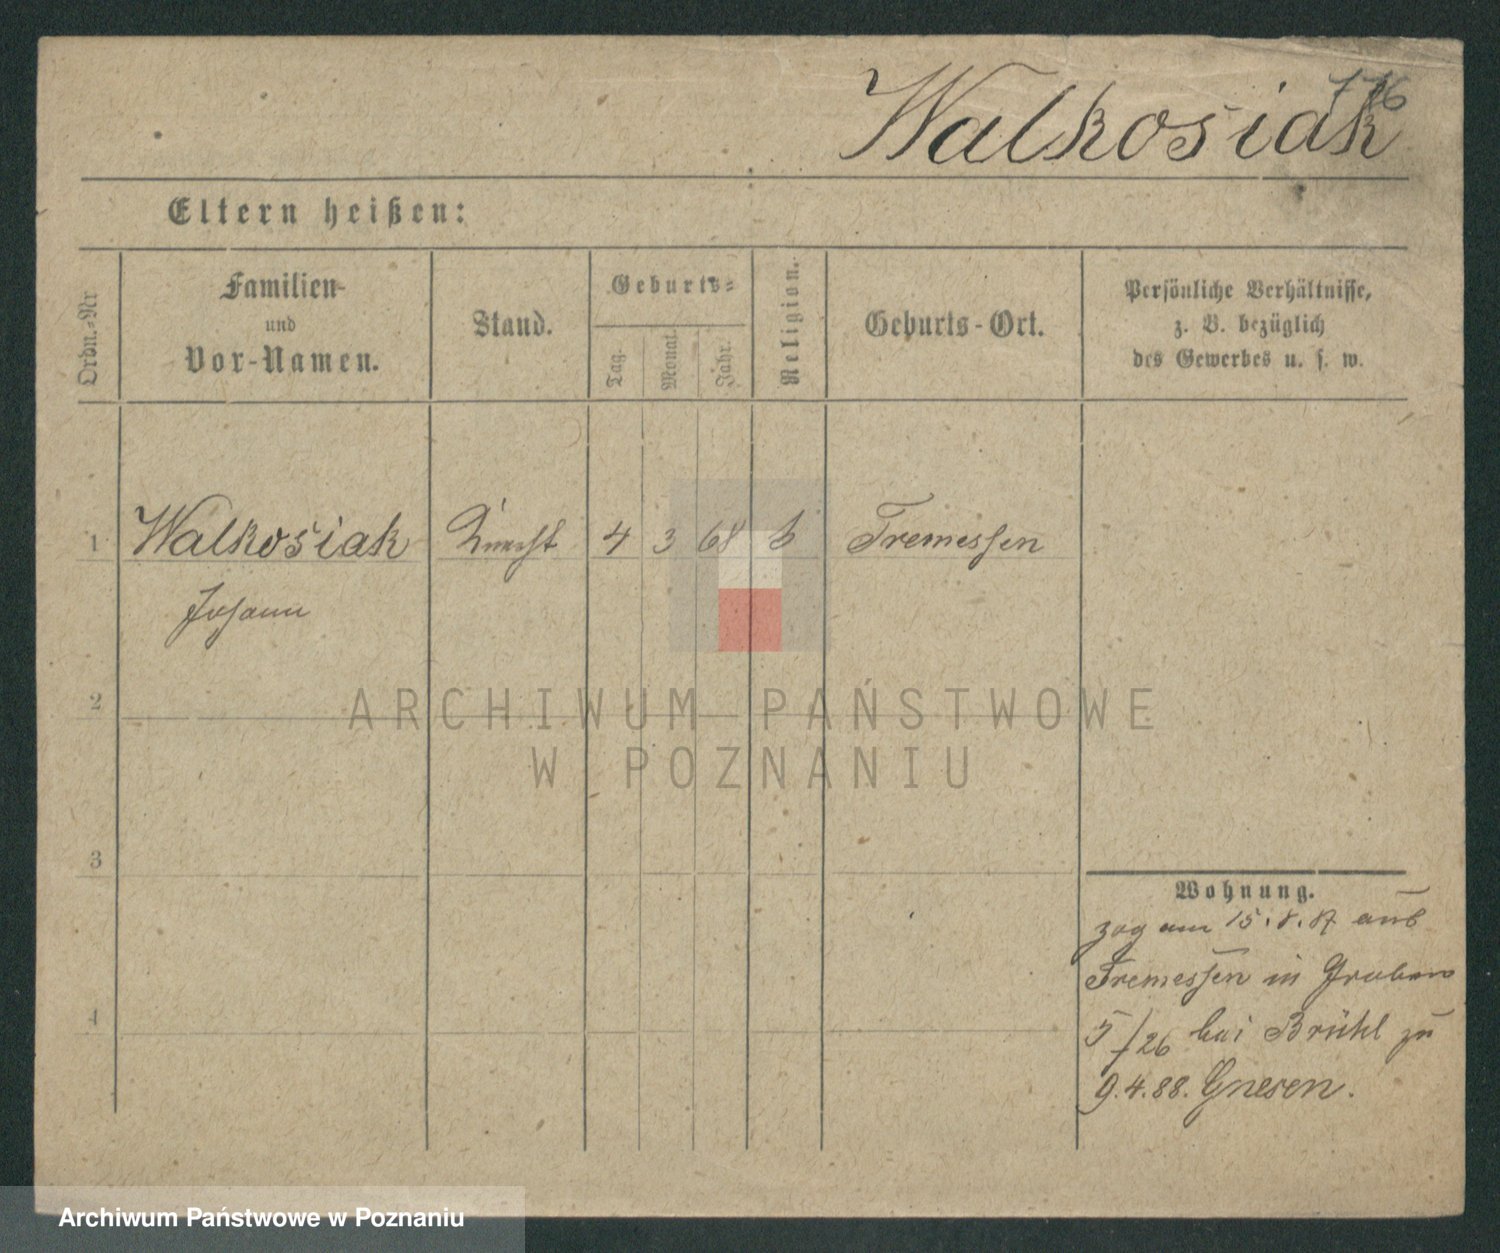 776
Walkosiak
Eltern heißen:
Ordn.-Nr
Familien-
und
Vor-Namen.
Stand.
Geburts-
Tag.
Monat.
Jahr.
Religion.
Geburts-Ort.
Persönliche Verhältnisse,
z. B. bezüglich
des Gewerbes u. s. w.
1 Walkosiak Knecht 4 3 68 Tremessen
Johann
2
3
4
Wohnung.
zog am 15.8.87 aus
Tremessen in Graben
5/26 bei Brühl zu
9.4.88. Gnesen.
ARCHIWUM PAŃSTWOWE
W POZNANIU
Archiwum Państwowe w Poznaniu